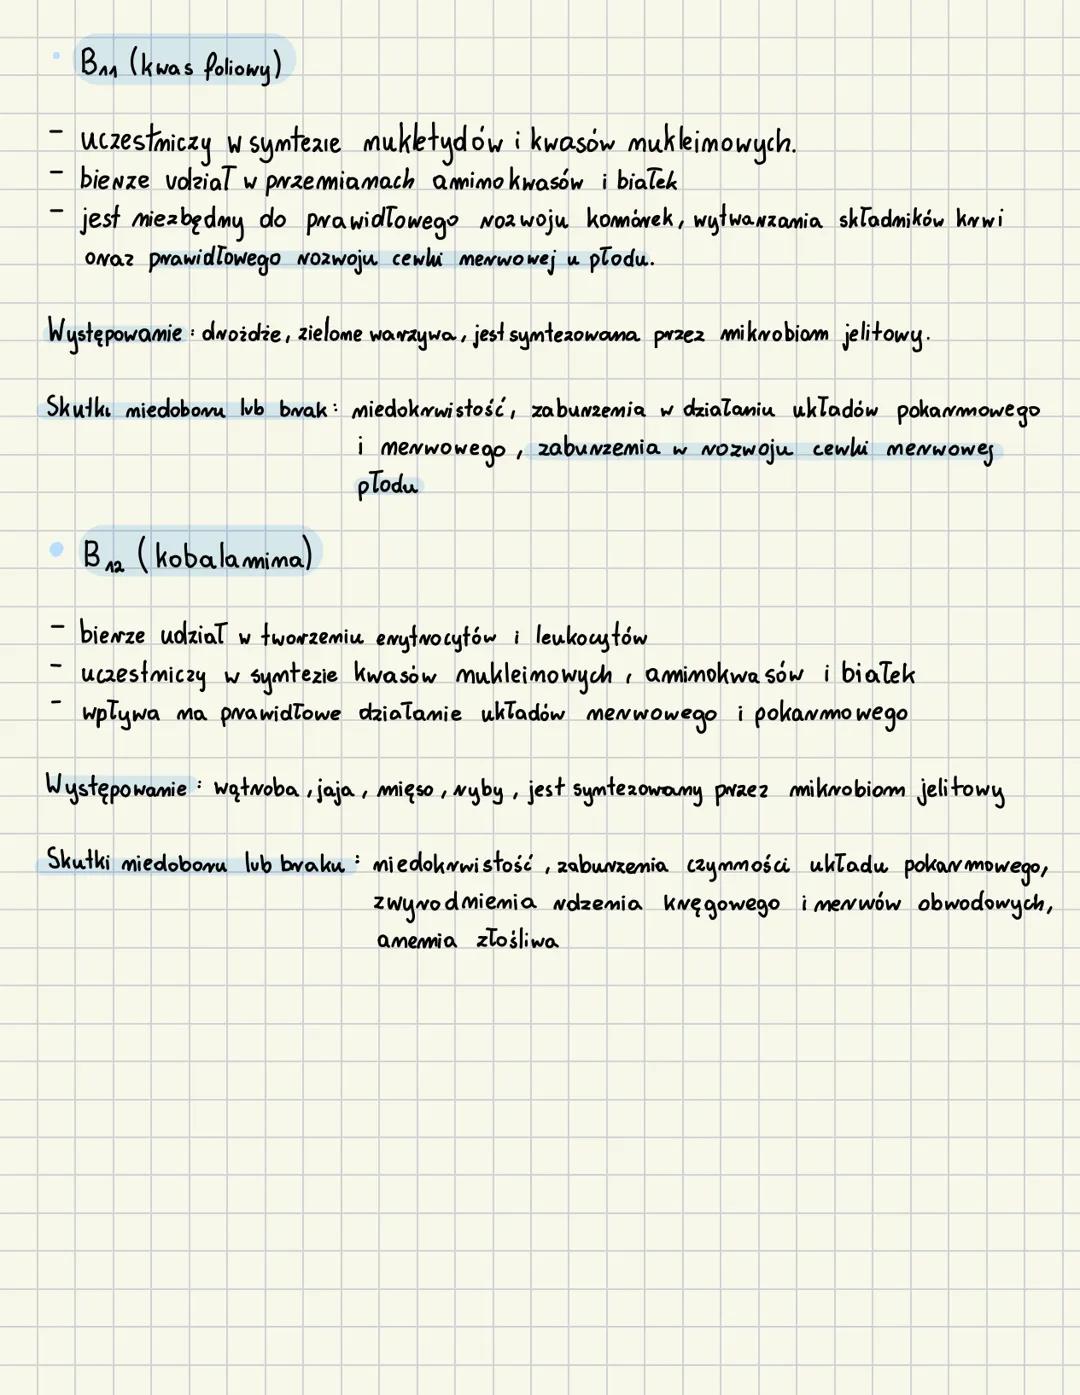 • B₁₁ (kwas foliowy)
- uczestniczy w syntezie nukletydów i kwasów nukleinowych.
- bierze udział w przemianach aminokwasów i białek
- jest niezbędny do prawidłowego rozwoju komórek, wytwarzania składników krwi
oraz prawidłowego rozwoju cewki nerwowej u płodu.
Występowanie: drożdże, zielone warzywa, jest syntezowana przez mikrobiom jelitowy.
Skutki niedoboru lub brak: niedokrwistość, zaburzenia w działaniu układów pokarmowego
i nerwowego, zaburzenia w rozwoju cewki nerwowej
płodu
• B₁₂ (kobalamina)
- bierze udział w tworzeniu erytrocytów i leukocytów
- uczestniczy w syntezie kwasów nukleinowych, aminokwasów i białek
- wpływa na prawidłowe działanie układów nerwowego i pokarmowego
Występowanie: wątroba, jaja, mięso, ryby, jest syntezowany przez mikrobiom jelitowy
Skutki niedoboru lub braku: niedokrwistość, zaburzenia czynności układu pokarmowego,
zwyrodnienia rdzenia kręgowego i nerwów obwodowych,
anemia złośliwa